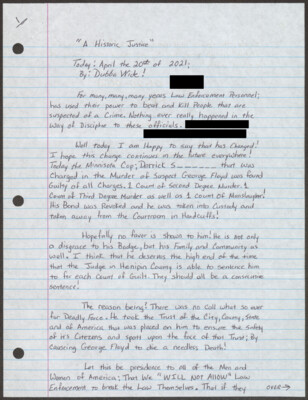 "A Historic Justice"
Today: April the 20th of 2021:
By: Dubble Wide!
For many, many, many years Law Enforcement Personnel;
has used their power to beat and Kill People that are
suspected of a Crime. Nothing ever really happened in the
way of Discipline to these officials.
Well today I am Happy to say that has Changed!
I hope this change continues in the future everywhere!
Today the Minnesota Cop; Derrick S that was
Charged in the Murder of Suspect George Floyd was found
Guilty of all Charges. 1 Count of Second Degree Murder. 1
Count of Third Degree Murder as well as 1 Count of Manslaughter!
His Bond was Revoked and he was taken into Custody and
taken away from the Courtroom in Handcuffs!
Hopefully no favor is shown to him! He is not only
a disgrace to his Badge, but his Family and Community as
well. I think that he deserves the high end of the time
that the Judge in Henipin County is able to sentence him
to for each Count of Guilt. They should all be a consecutive
sentence!
The reason being! There was no call what so ever
for Deadly Force. He took the Trust of the City, County, State
and of America that was placed on him to ensure the safety
of its Citizens and spat upon the face of that Trust; By
Causing George Floyd to die a needless Death!
Let this be presidence to all of the Men and
Women of America; That We "WILL NOT ALLOW" Law
Enforcement to break the Law Themselves. That if they
OVER→